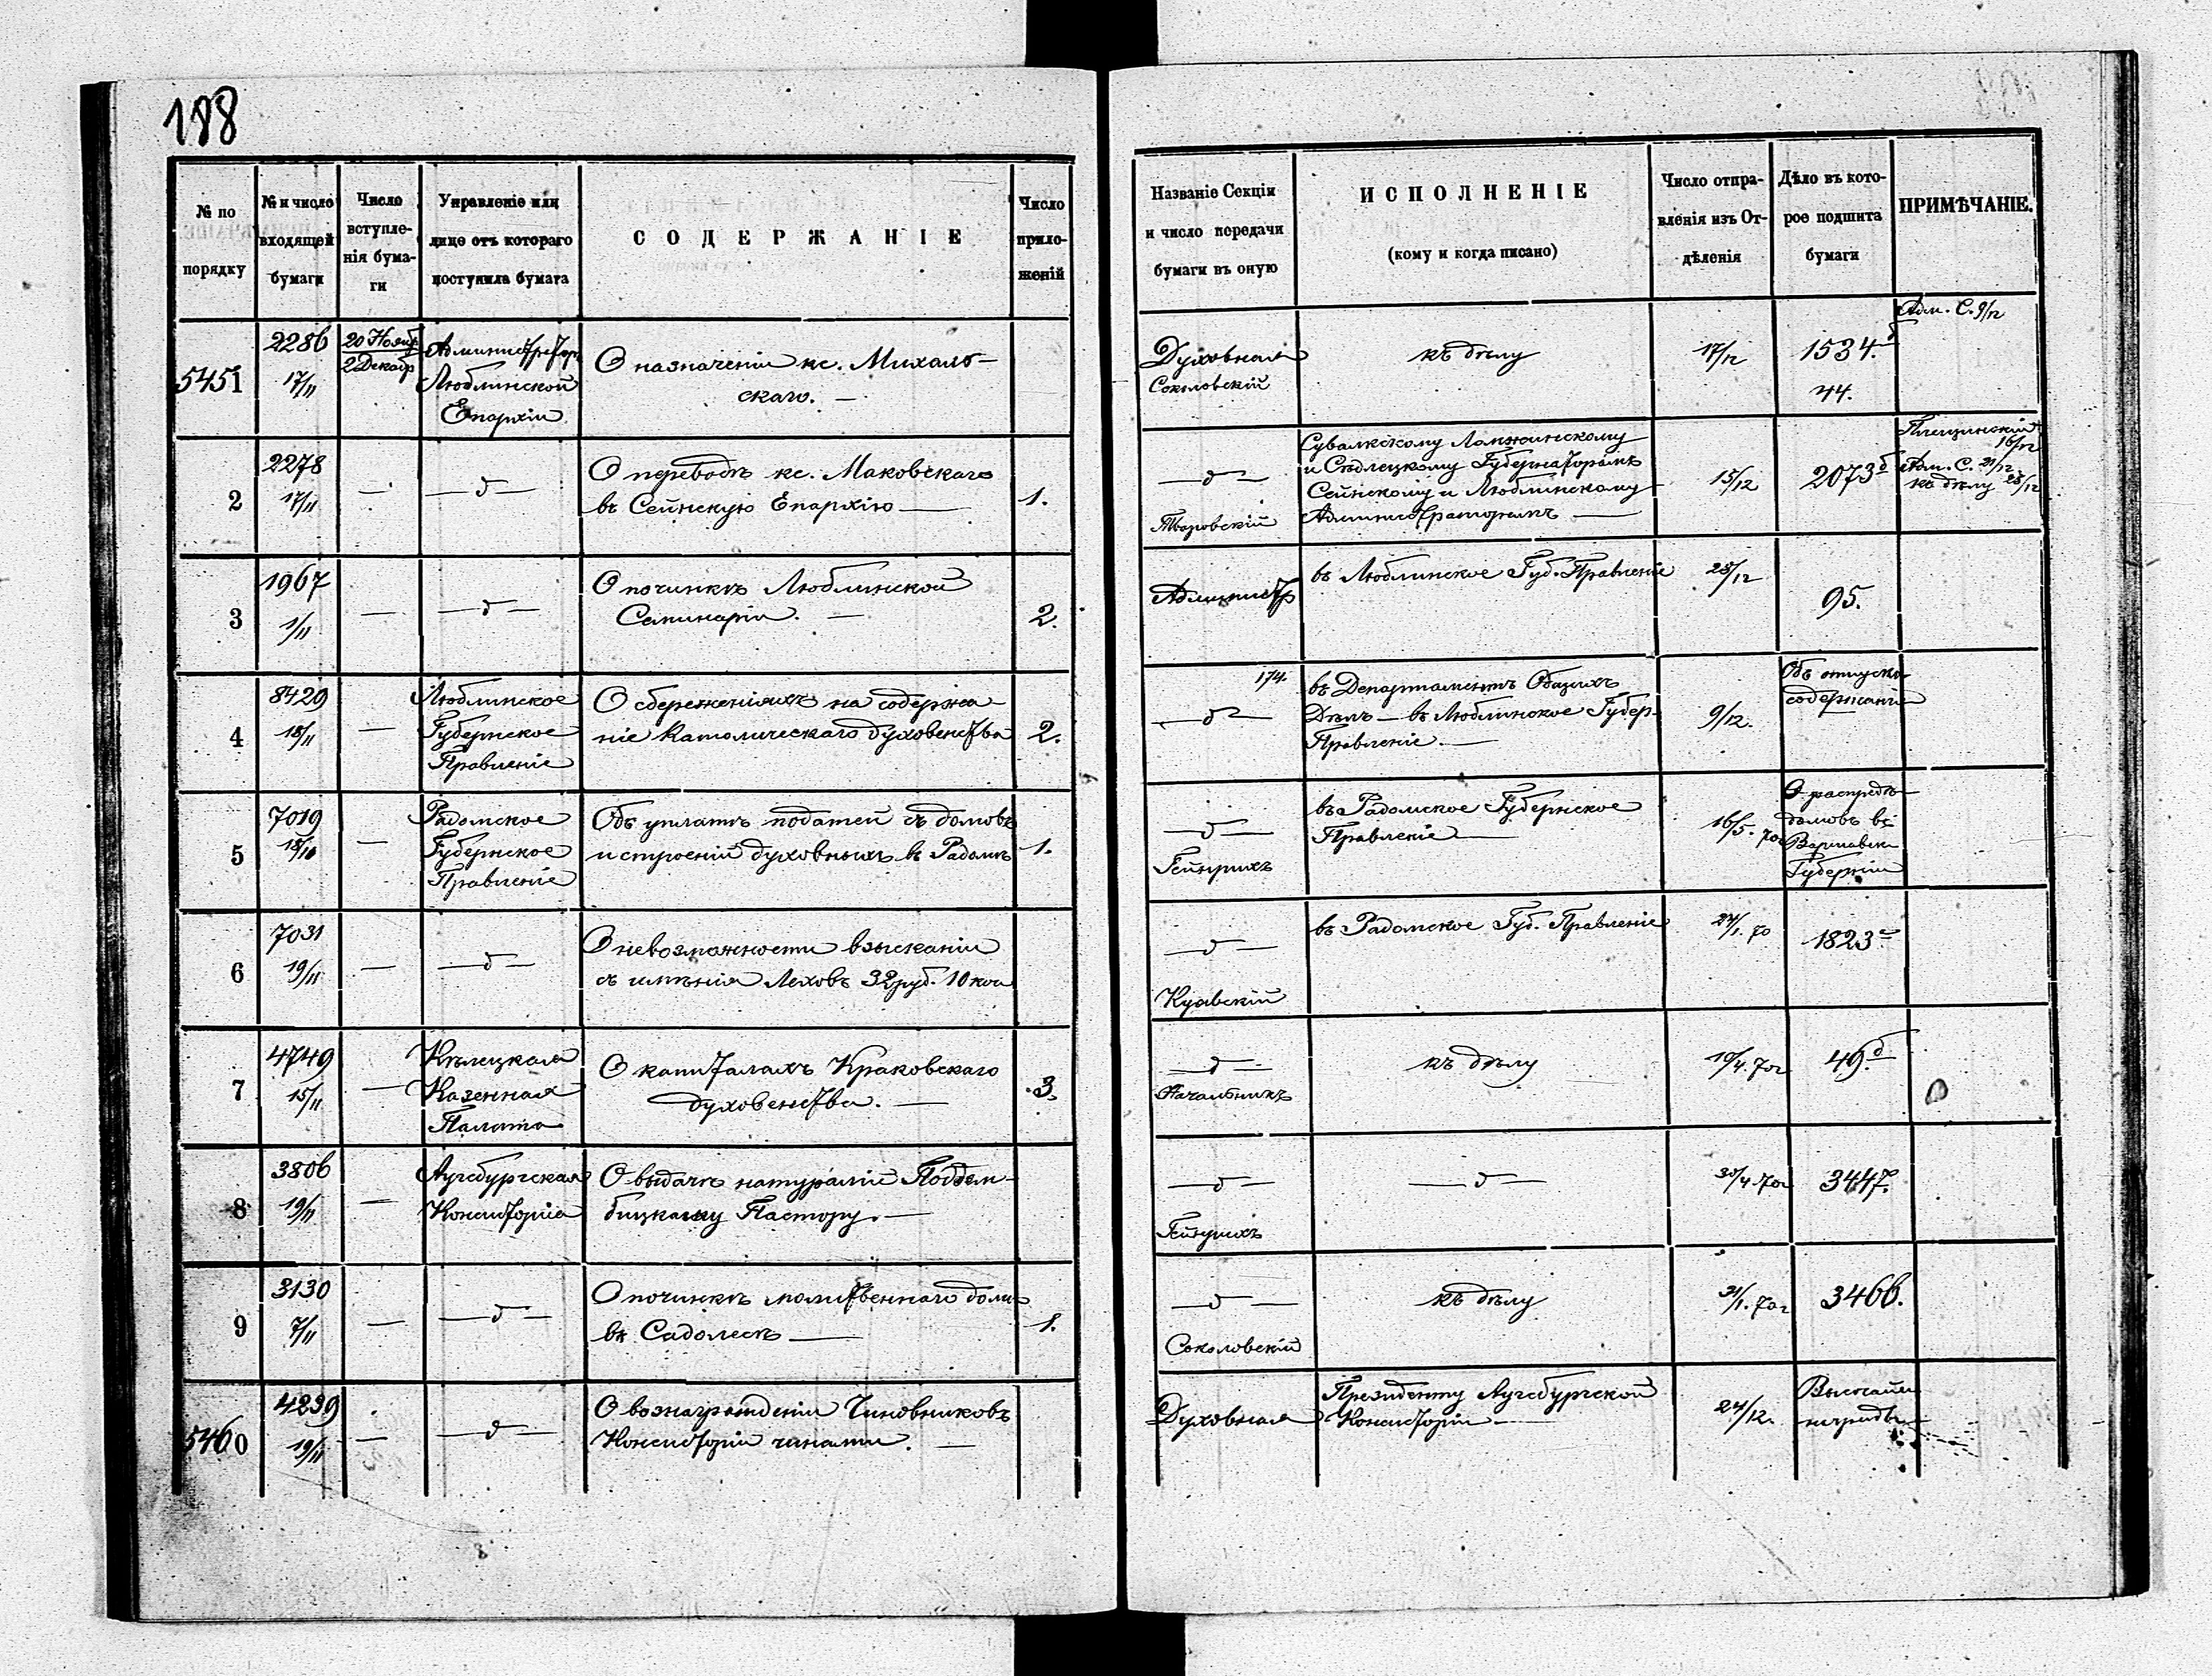 188
№ по порядку
№ и число входящей бумаги
Число вступле-нія бума-ги
Управленіе или лице отъ котораго поступила бумага
СОДЕРЖАНІЕ
Число прило-женій
Названіе Секціи и число передачи бумаги въ оную
ИСПОЛНЕНІЕ
(кому и когда писано)
Число отпра-вленія изъ От-дѣленія
Дѣло въ кото-рое подшита бумаги
ПРИМѢЧАНІЕ.
5451
2286
17/11
20 Нояб
2 Декабр
Администрator
Люблинской
Епархіи
О назначеніи кс. Михаль-
скаго. —
Духовная
Соколовскій
къ дѣлу
17/12
1534.
44.
Адм. С. 9/12
2
2278
17/11
—
— д —
О переводѣ кс. Маковскаго
въ Сейнскую Епархію —
1.
— д —
Сувалкскому Ломжинскому
и Сѣдлецкому Губернаторамъ
Сейнскому и Люблинскому
Администраторамъ —
15/12
2073 б
16/12
Адм. С. 21/12
къ дѣлу 28/12
3
1967
1/11
—
— д —
О починкѣ Люблинской
Семинаріи. —
2.
Администр
въ Люблинское Губ. Правленіе
28/12
95.
4
8429
18/11
—
Люблинское
Губернское
Правленіе
О сбереженіяхъ на содержа
ніе Католическаго духовенства
2.
174.
— д —
въ Департаментъ Общихъ
Дѣлъ — въ Люблинское Губер.
Правленіе. —
9/12.
Объ отпускѣ
содержанія
5
7019
18/10
—
Радомское
Губернское
Правленіе
Объ уплатѣ податей съ домовъ
и строеній духовныхъ въ Радомѣ
1.
— д —
Гейнрихъ
въ Радомское Губернское
Правленіе —
16/5. 70г
О распредѣ
домовъ въ
Варшавск
Губерніи
6
7031
19/11
—
— д —
О невозможности взысканіи
съ имѣнія Леховъ 32 руб. 10 коп
— д —
Куявскій
въ Радомское Губ. Правленіе
24/1. 70
1823
7
4749
15/11
—
Кѣлецкая
Казенная
Палата
О капиталахъ Краковскаго
духовенства. —
3.
— д —
Начальникъ
къ дѣлу
19/4. 70г
49 д
8
3806
19/11
—
Аугсбургская
Консисторія
О выдачѣ натураліи Поддем-
бицкому Пастору. —
— д —
Гейнрихъ
— д —
30/4 70г
3447.
9
3130
7/11
—
— д —
О починкѣ молитвеннаго дома
въ Садолесѣ —
1.
— д —
Соколовскій
къ дѣлу
31/1. 70г
3466.
5460
4239
19/11
—
— д —
О вознагражденіи Чиновниковъ
Консисторіи чинами. —
Духовная
Президенту Аугсбургской
Консисторіи —
24/12.